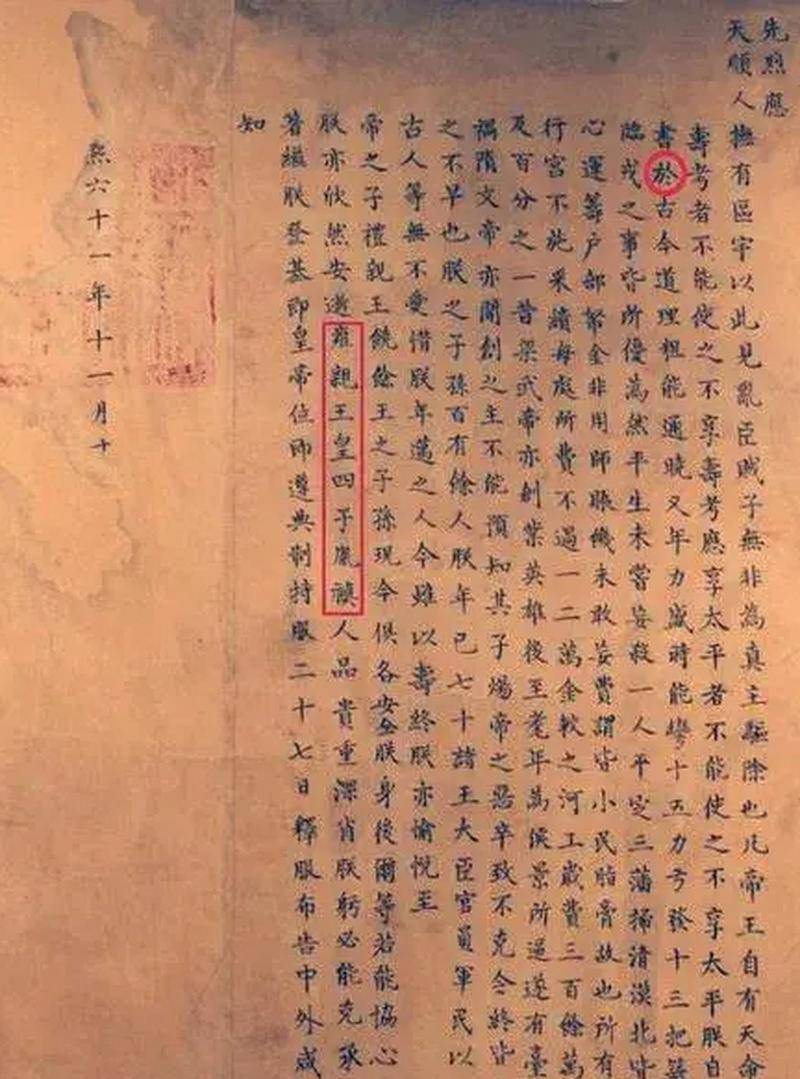 先烈應
天順人撫有區宇以此見亂臣賊子無非為真主驅除也凡帝王自有天命
壽考者不能使之不享壽考應享太平者不能使之不享太平朕自
書於古今道理粗能通曉又年力盛時能彎十五力弓發十三把箭
臨戎之事皆所優為然平生未嘗妄殺一人平定三藩掃清漠北皆
心運籌戶部帑金非用師賑饑未敢妄費謂皆小民脂膏故也所有
行宮不施采繢每處所費不過一二萬金較之河工歲費三百餘萬
及百分之一昔梁武帝亦創業英雄後至耄年為侯景所逼遂有臺
禍隋文帝亦開創之主不能預知其子煬帝之惡卒致不克令終皆
之不早也朕之子孫百有餘人朕年已七十諸王大臣官員軍民以
古人等無不愛惜朕年邁之人今雖以壽終朕亦愉悅至
帝之子禮親王饒餘王之子孫現今俱各安全朕身後爾等若能協心
朕亦欣然安逝雍親王皇四子胤禛人品貴重深肖朕躬必能克承
著繼朕登基即皇帝位即遵典制持服二十七日釋服布告中外咸
知
熙六十一年十一月十